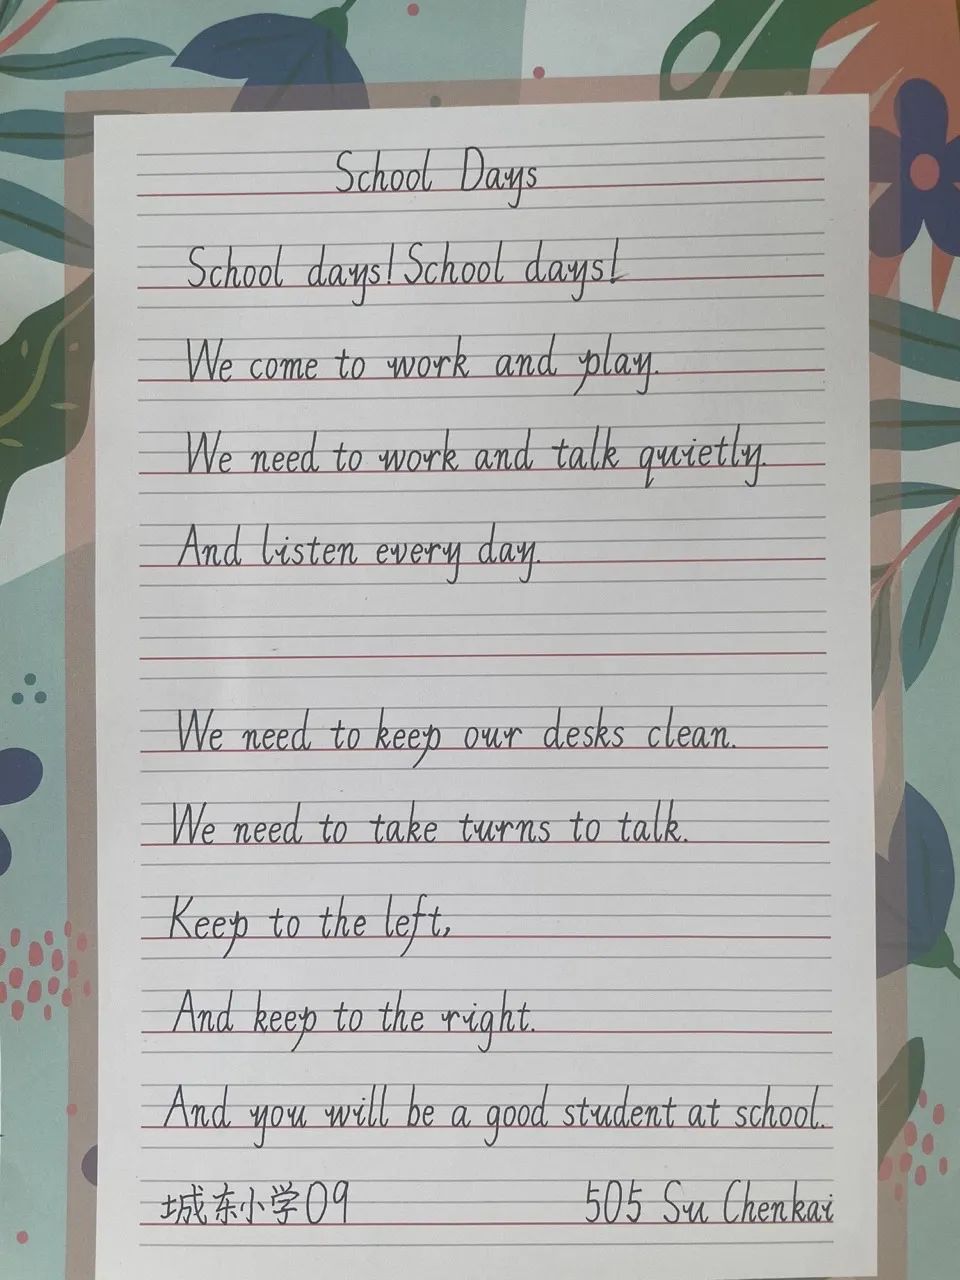 School Days
School days! School days!
We come to work and play.
We need to work and talk quietly.
And listen every day.
We need to keep our desks clean.
We need to take turns to talk.
Keep to the left,
And keep to the right.
And you will be a good student at school.
城东小学09 505 Su Chenkai